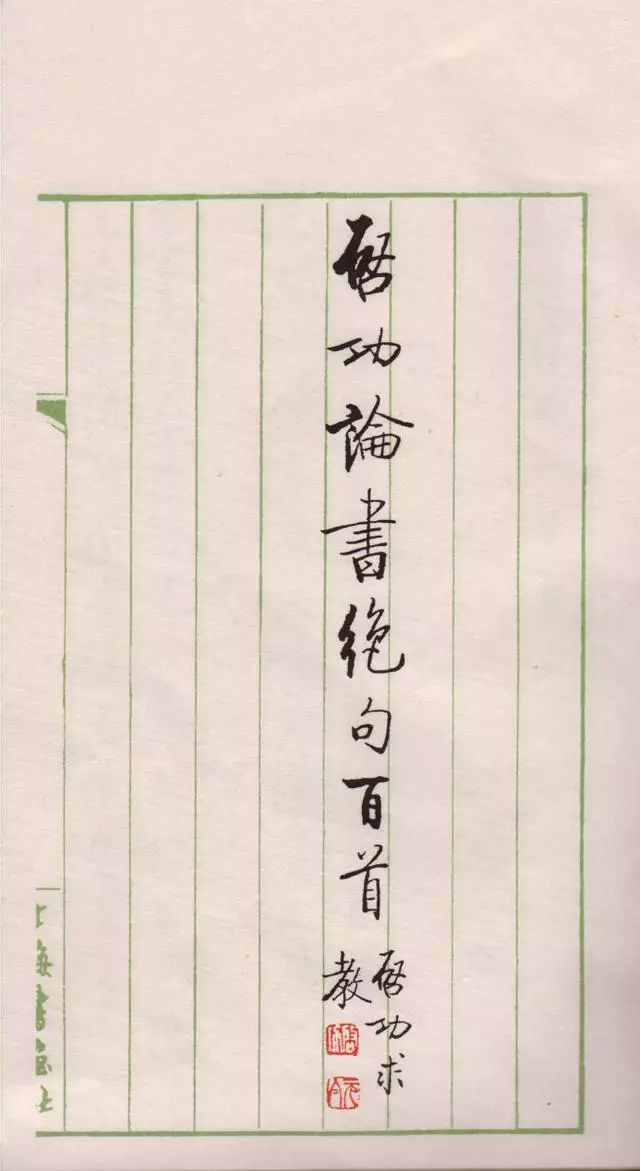 啓功論書絶句百首
啓功求
教
上海書畫社